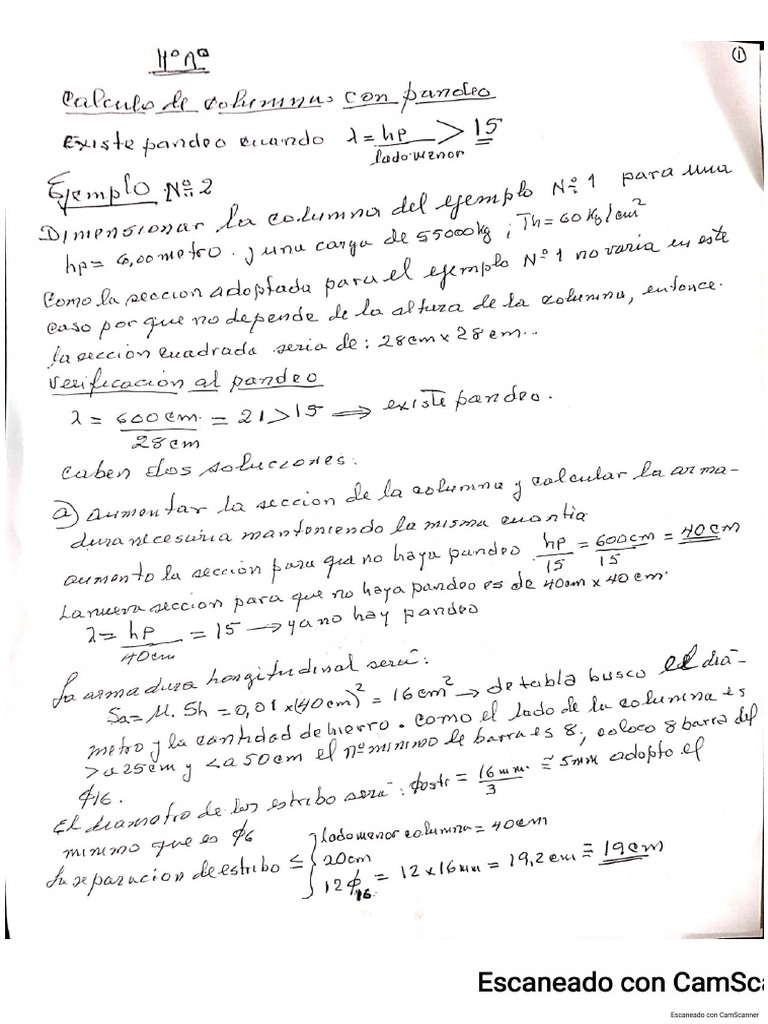 HºAº
①
Calculo de columnas con pandeo
Existe pandeo cuando λ = hp / lado menor > 15
Ejemplo Nº 2
Dimensionar la columna del ejemplo Nº 1 para una
hp = 6,00 metro. y una carga de 55000kg ; Th = 60 Kg/cm²
Como la seccion adoptada para el ejemplo Nº 1 no varia en este
caso por que no depende de la altura de la columna, entonce.
la sección cuadrada seria de: 28cm x 28cm..
Verificacion al pandeo
λ = 600cm / 28cm = 21 > 15 ⟹ existe pandeo.
Caben dos soluciones:
a) Aumentar la seccion de la columna y calcular la arma-
dura necesaria manteniendo la misma cuantia
aumento la sección para que no haya pandeo hp / 15 = 600cm / 15 = 40cm
La nueva seccion para que no haya pandeo es de 40cm x 40cm.
λ = hp / 40cm = 15 → ya no hay pandeo
La armadura longitudinal será:
Sa = μ. Sh = 0,01 x (40cm)² = 16cm² → de tabla busco el diá-
metro y la cantidad de hierro. Como el lado de la columna es
> a 25cm y < a 50cm el nº minimo de barra es 8; coloco 8 barra del
ϕ16.
El diametro de los estribo será: ϕestr = 16mm / 3 ≅ 5mm adopto el
minimo que es ϕ6
La separacion de estribo ≤ { lado menor columna = 40cm
20cm
12ϕ16 = 12 x 16mm = 19,2cm ≅ 19cm
Escaneado con CamSca
Escaneado con CamScanner